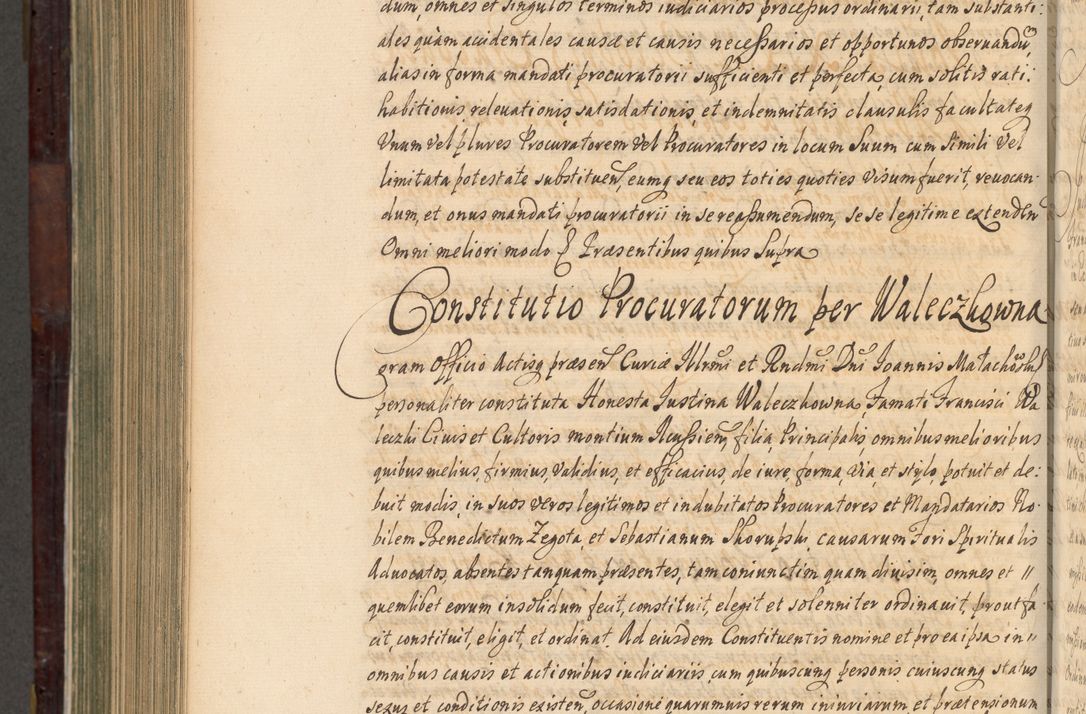 dum, omnes et singulos terminos iudiciarios processus ordinarii, tam substanti:
ales quàm accidentales causæ et causis necessarios et opportunos obseruandũ,
alias in forma mandati procuratorii sufficienti et perfecta, cum solitis rati:
habitionis, releuationis, satisdationis, et indemnitatis clausulis facultateq
Vnum vel plures Procuratorem vel Procuratores in locum Suum cum simili vel
limitata potestate substituen, eumq seu eos toties quoties visum fuerit, reuocan
dum, et onus mandati procuratorii in se reassumendum, se se legitime extenden
Omni meliori modo Præsentibus quibus Supra
Constitutio Procuratorum per Waleczkowna
Coram Officio Actisq præsen Curiæ Illrmi et Rndmi Dni Joannis Małachowski
personaliter constituta Honesta Justina Waleczkowna, Famati Francisci Wa
leczki Ciuis et Cultoris montium Ilcussien, filia, Principalis, omnibus melioribus
quibus melius, firmius, validius, et efficacius, de iure, forma, via, et stylo, potuit et de:
buit modis, in suos veros legitimos et indubitatos Procuratores et Mandatarios No:
bilem Benedictum Zegota, et Sebastianum Skorupski, causarum Fori Spiritualis
Aduocatos, absentes tanquam præsentes, tam coniunctim quam diuisim, omnes et //
quemlibet eorum insolidum fecit, constituit, elegit et solenniter ordinauit, prout fa
cit, constituit, eligit, et ordinat. Ad eiusdem Constituentis nomine et pro ea ipsa in //
omnibus causis et actionibus iudiciariis, cum quibuscunq personis cuiuscunq status
sexus et conditionis existen, occasione quarumuis rerum iniuriarum et prætensionum